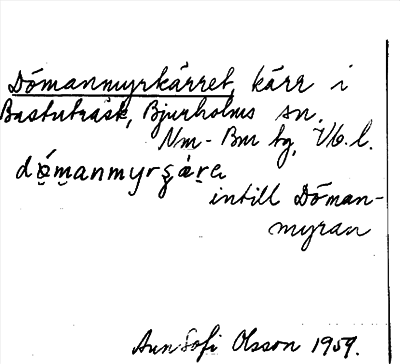 Dómanmyrkärret, kärr i
Bastuträsk, Bjurholms sn.
Nm-Bm tg, Vb. l.
intill Dóman-
myran
Ann-Sofi Olsson 1959.